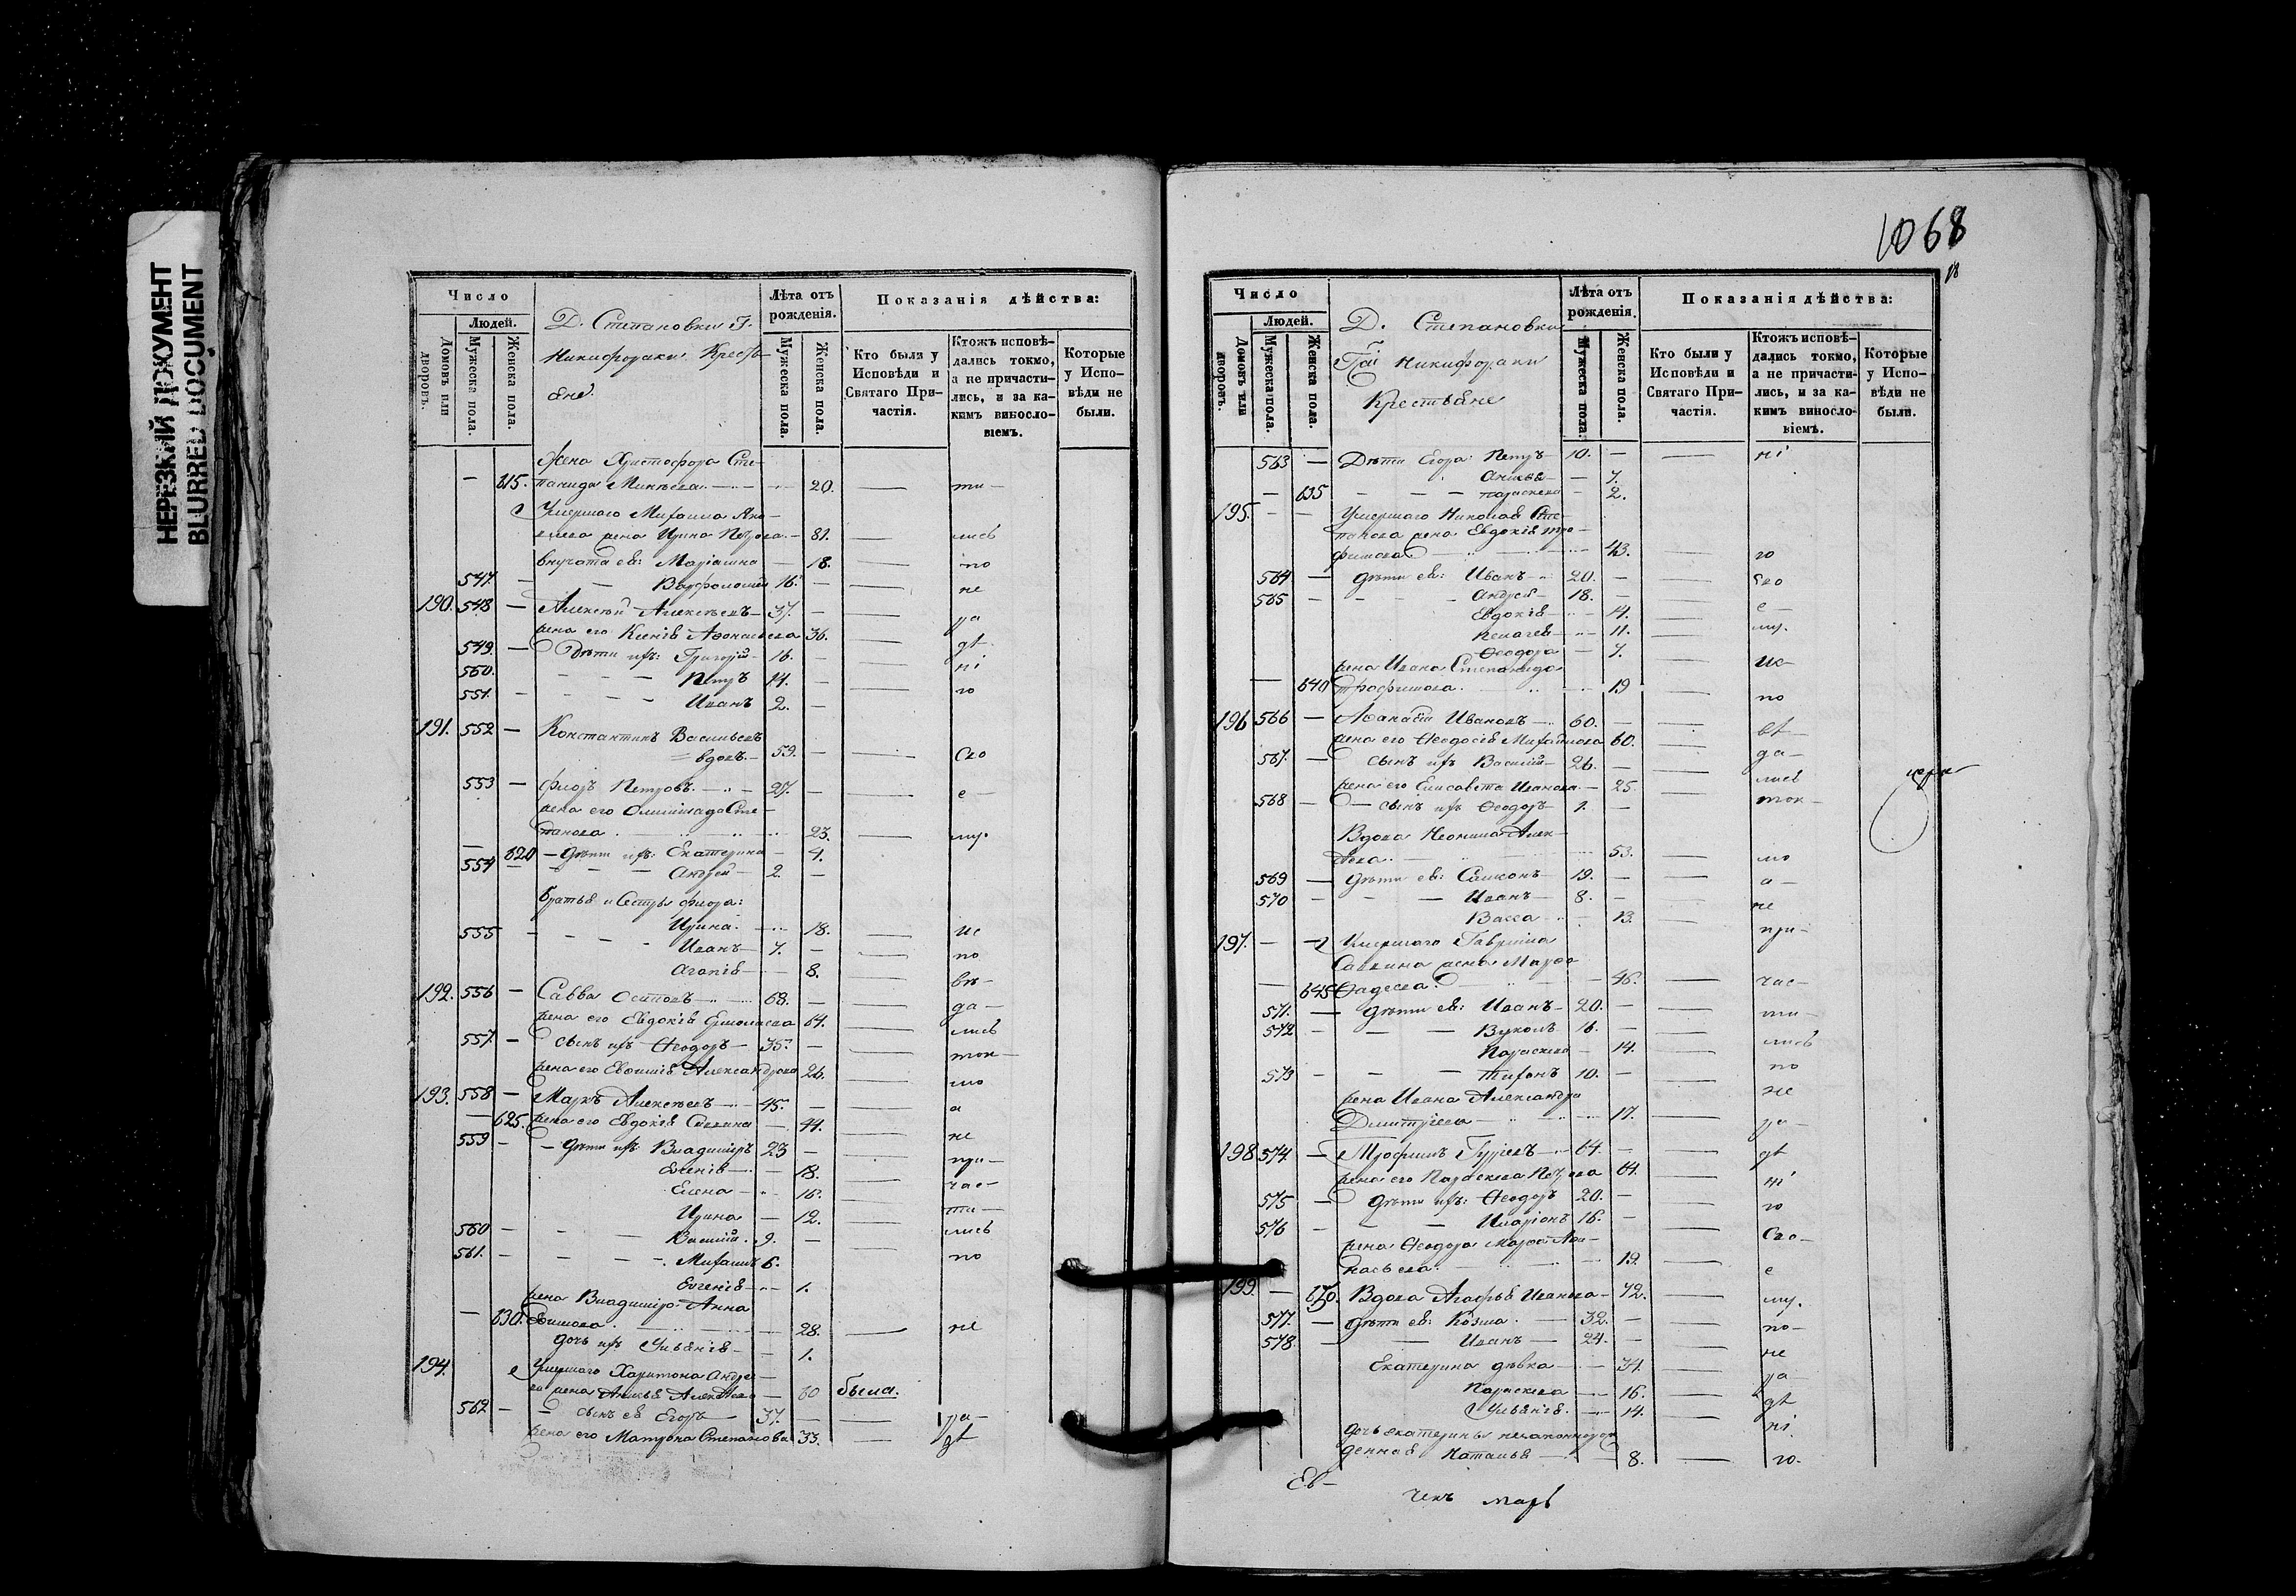 НЕРЕЗКИЙ ДОКУМЕНТ
BLURRED DOCUMENT
Число
Людей.
Домовъ или дворовъ.
Мужеска пола.
Женска пола.
Д. Степановки Г.
Никифораки Кресть-
яне.
Лѣта отъ рожденія.
Мужеска пола.
Женска пола.
Показанія дѣйства:
Кто были у Исповѣди и Святаго Причастія.
Ктожъ исповѣ-
дались токмо,
а не причасти-
лись, и за ка-
кимъ винословіемъ.
Которые у Испо-
вѣди не были.
Жена Христофора Сте-
215. панида Михѣева 20. — ти—
Умершаго Михаила Яко-
влева жена Ирина Петрова 81. — лись
внучата ея: Маріанна — 18. — по
547. — Варфоломей 16. — не
190. 548 — Алексѣй Алексѣевъ 37. — ра
жена его Ксенія Аѳонасьева 36. — дѣ
549. — Дѣти ихъ: Григорій 16. — ні
550. — Петръ 14. — го
551. — Иванъ 2. —
191. 552 — Константинъ Васильевъ
вдовъ 59. — сво
553 — Флоръ Петровъ 27. — е—
жена его Олимпіада Сте-
панова 23. — му.
620 — дѣти ихъ: Екатерина 4.
554 — Андрей 2. —
Братья и Сестры Флора:
Ирина 18. — ис
555 — Иванъ 7. — по
Агапія 8. — вѣ—
192. 556 — Савва Осиповъ 68. — да—
жена его Евдокія Ермолаева 64. — лись
557. — сынъ ихъ Ѳеодоръ 35. — ток—
жена его Евѳимія Александрова 26. — мо
193. 558 — Маркъ Алексѣевъ 45. — а
625. жена его Евдокія Саввина 44. — не
559 — дѣти ихъ Владиміръ 23 — при—
Евгенія 18. — час—
Елена 16. — ти—
Ирина — 12. — лись
560 — Василій 9. — по
561. — Михаилъ 6.
Евгенія 1.
жена Владиміра Анна
630. Ефимова 28. — не
дочь ихъ Ульянія 1.
194. Умершаго Харитона Андре-
ева жена Анисья Алексѣева 60 была.
562 — сынъ ея Егоръ 37. — ра—
жена его Матрона Степанова 33. — дѣ
1068
Число
Людей.
Домовъ или дворовъ.
Мужеска пола.
Женска пола.
Д. Степановки
Гжи Никифораки
Крестьяне
Лѣта отъ рожденія.
Мужеска пола.
Женска пола.
Показанія дѣйства:
Кто были у Исповѣди и Святаго Причастія.
Ктожъ исповѣ-
дались токмо,
а не причасти-
лись, и за ка-
кимъ винословіемъ.
Которые у Испо-
вѣди не были.
563 — Дѣти Егора: Петръ 10. — ні
Анисья — 7.
635 — Параскева 2.
195. Умершаго Николая Сте-
панова жена Евдокія Тро-
фимова 43. — го
564 — дѣти ея: Иванъ 20. — сво
565 — Андрей 18. — е—
Евдокія 14. — му.
Пелагея 11.
Ѳеодора — 7. — ис—
жена Ивана Степанида
640 Трофимова 19 — по
196 566 — Аѳанасій Ивановъ 60. — вѣ
жена его Ѳеодосія Михайлова 60. — да—
567. — сынъ ихъ Василій 26. — лись
жена его Елисавета Иванова 25.
568 — сынъ ихъ Ѳеодоръ 1. — ток—
Вдова Неонила Алек-
ѣева 53. — мо
569 — дѣти ея: Самсонъ 19. — а—
570 — Иванъ 8. — не
Васса 13. — при—
197. Умершаго Гавріила
Саввина жена Марѳа
645 Ѳадеева 46. — час—
571. — дѣти ея: Иванъ 20. — ти—
572 — Вуколъ 16. — лись
Параскева 14.
573 — Тихонъ 10. — по
жена Ивана Александра — не
Димитріева 17. — ра—
198 574. — Трофимъ Гурьевъ 64. — дѣ
жена его Параскева Петрова 64. — ні
575 — дѣти ихъ: Ѳеодоръ 20. — го
576 — Иларіонъ 16.
жена Ѳеодора Марѳа Аѳа- — сво—
насьева 19. — е
199. 650. Вдова Агафья Иванова 72. — му.
577. — дѣти ея: Козма 32. — по—
578. — Иванъ 24. — не
Екатерина дѣвка 34 — ра—
Параскева 16. — дѣ
Ульянія 14.
дочь Екатерины незаконнорож — ні
денная Наталья 8. — го.